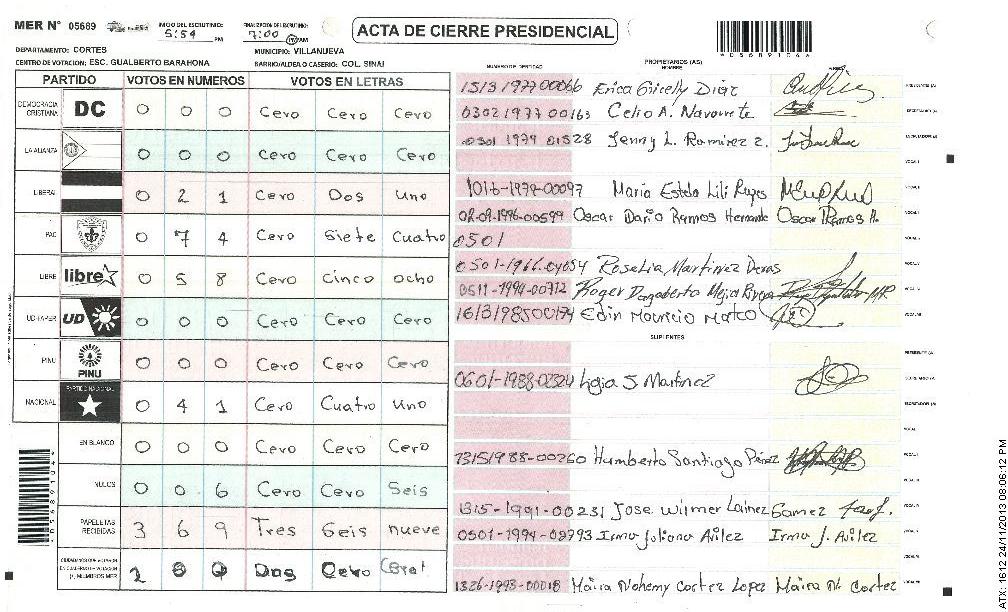 MER N° 05689
INICIO DEL ESCRUTINIO: 5:54 PM
FINALIZACION DEL ESCRUTINIO: 7:00 PM
ACTA DE CIERRE PRESIDENCIAL
DEPARTAMENTO: CORTES
MUNICIPIO: VILLANUEVA
CENTRO DE VOTACION: ESC. GUALBERTO BARAHONA
BARRIO/ALDEA O CASERIO: COL. SINAI
PARTIDO VOTOS EN NUMEROS VOTOS EN LETRAS
DEMOCRACIA CRISTIANA DC 0 0 0 Cero Cero Cero
LA ALIANZA 0 0 0 Cero Cero Cero
LIBERAL 0 2 1 Cero Dos uno
PAC 0 7 4 Cero Siete Cuatro
LIBRE libre 0 5 8 Cero Cinco ocho
UD-FAPER UD 0 0 0 Cero Cero Cero
PINU PINU 0 0 0 Cero Cero Cero
NACIONAL PARTIDO NACIONAL 0 4 1 Cero Cuatro uno
EN BLANCO 0 0 0 Cero Cero Cero
NULOS 0 0 6 Cero Cero Seis
PAPELETAS RECIBIDAS 3 6 9 Tres Seis nueve
Dos Cero
NUMERO DE IDENTIDAD
PROPIETARIOS (AS)
NOMBRE
Erica Gricelly Diaz
0302 1977 00163 Celio A. Navarrete
0301 1979 01528 Jenny L. Ramirez z.
1016-1979-00097 Maria Estela Lili Reyes
02-09-1996-00599 Oscar Dario Ramos Hernande Oscar Ramos H.
0501
Roselia Martinez Deras
0511-1994-00712 Roger Dagoberto Mejia Rivera
Edin Mauricio
SUPLENTES
0601-1988-02324 Ligia S Martinez
Humberto Santiago Pérez
1315-1991-00231 Jose Wilmer Lainez Gomez
0501-1994-08993 Irma Juliana Avilez Irma J. Avilez
1326-1993-00018 Maira Nohemy Cortez Lopez Maira N. Cortez
ATX: 1612 24/11/2013 08:06:12 PM